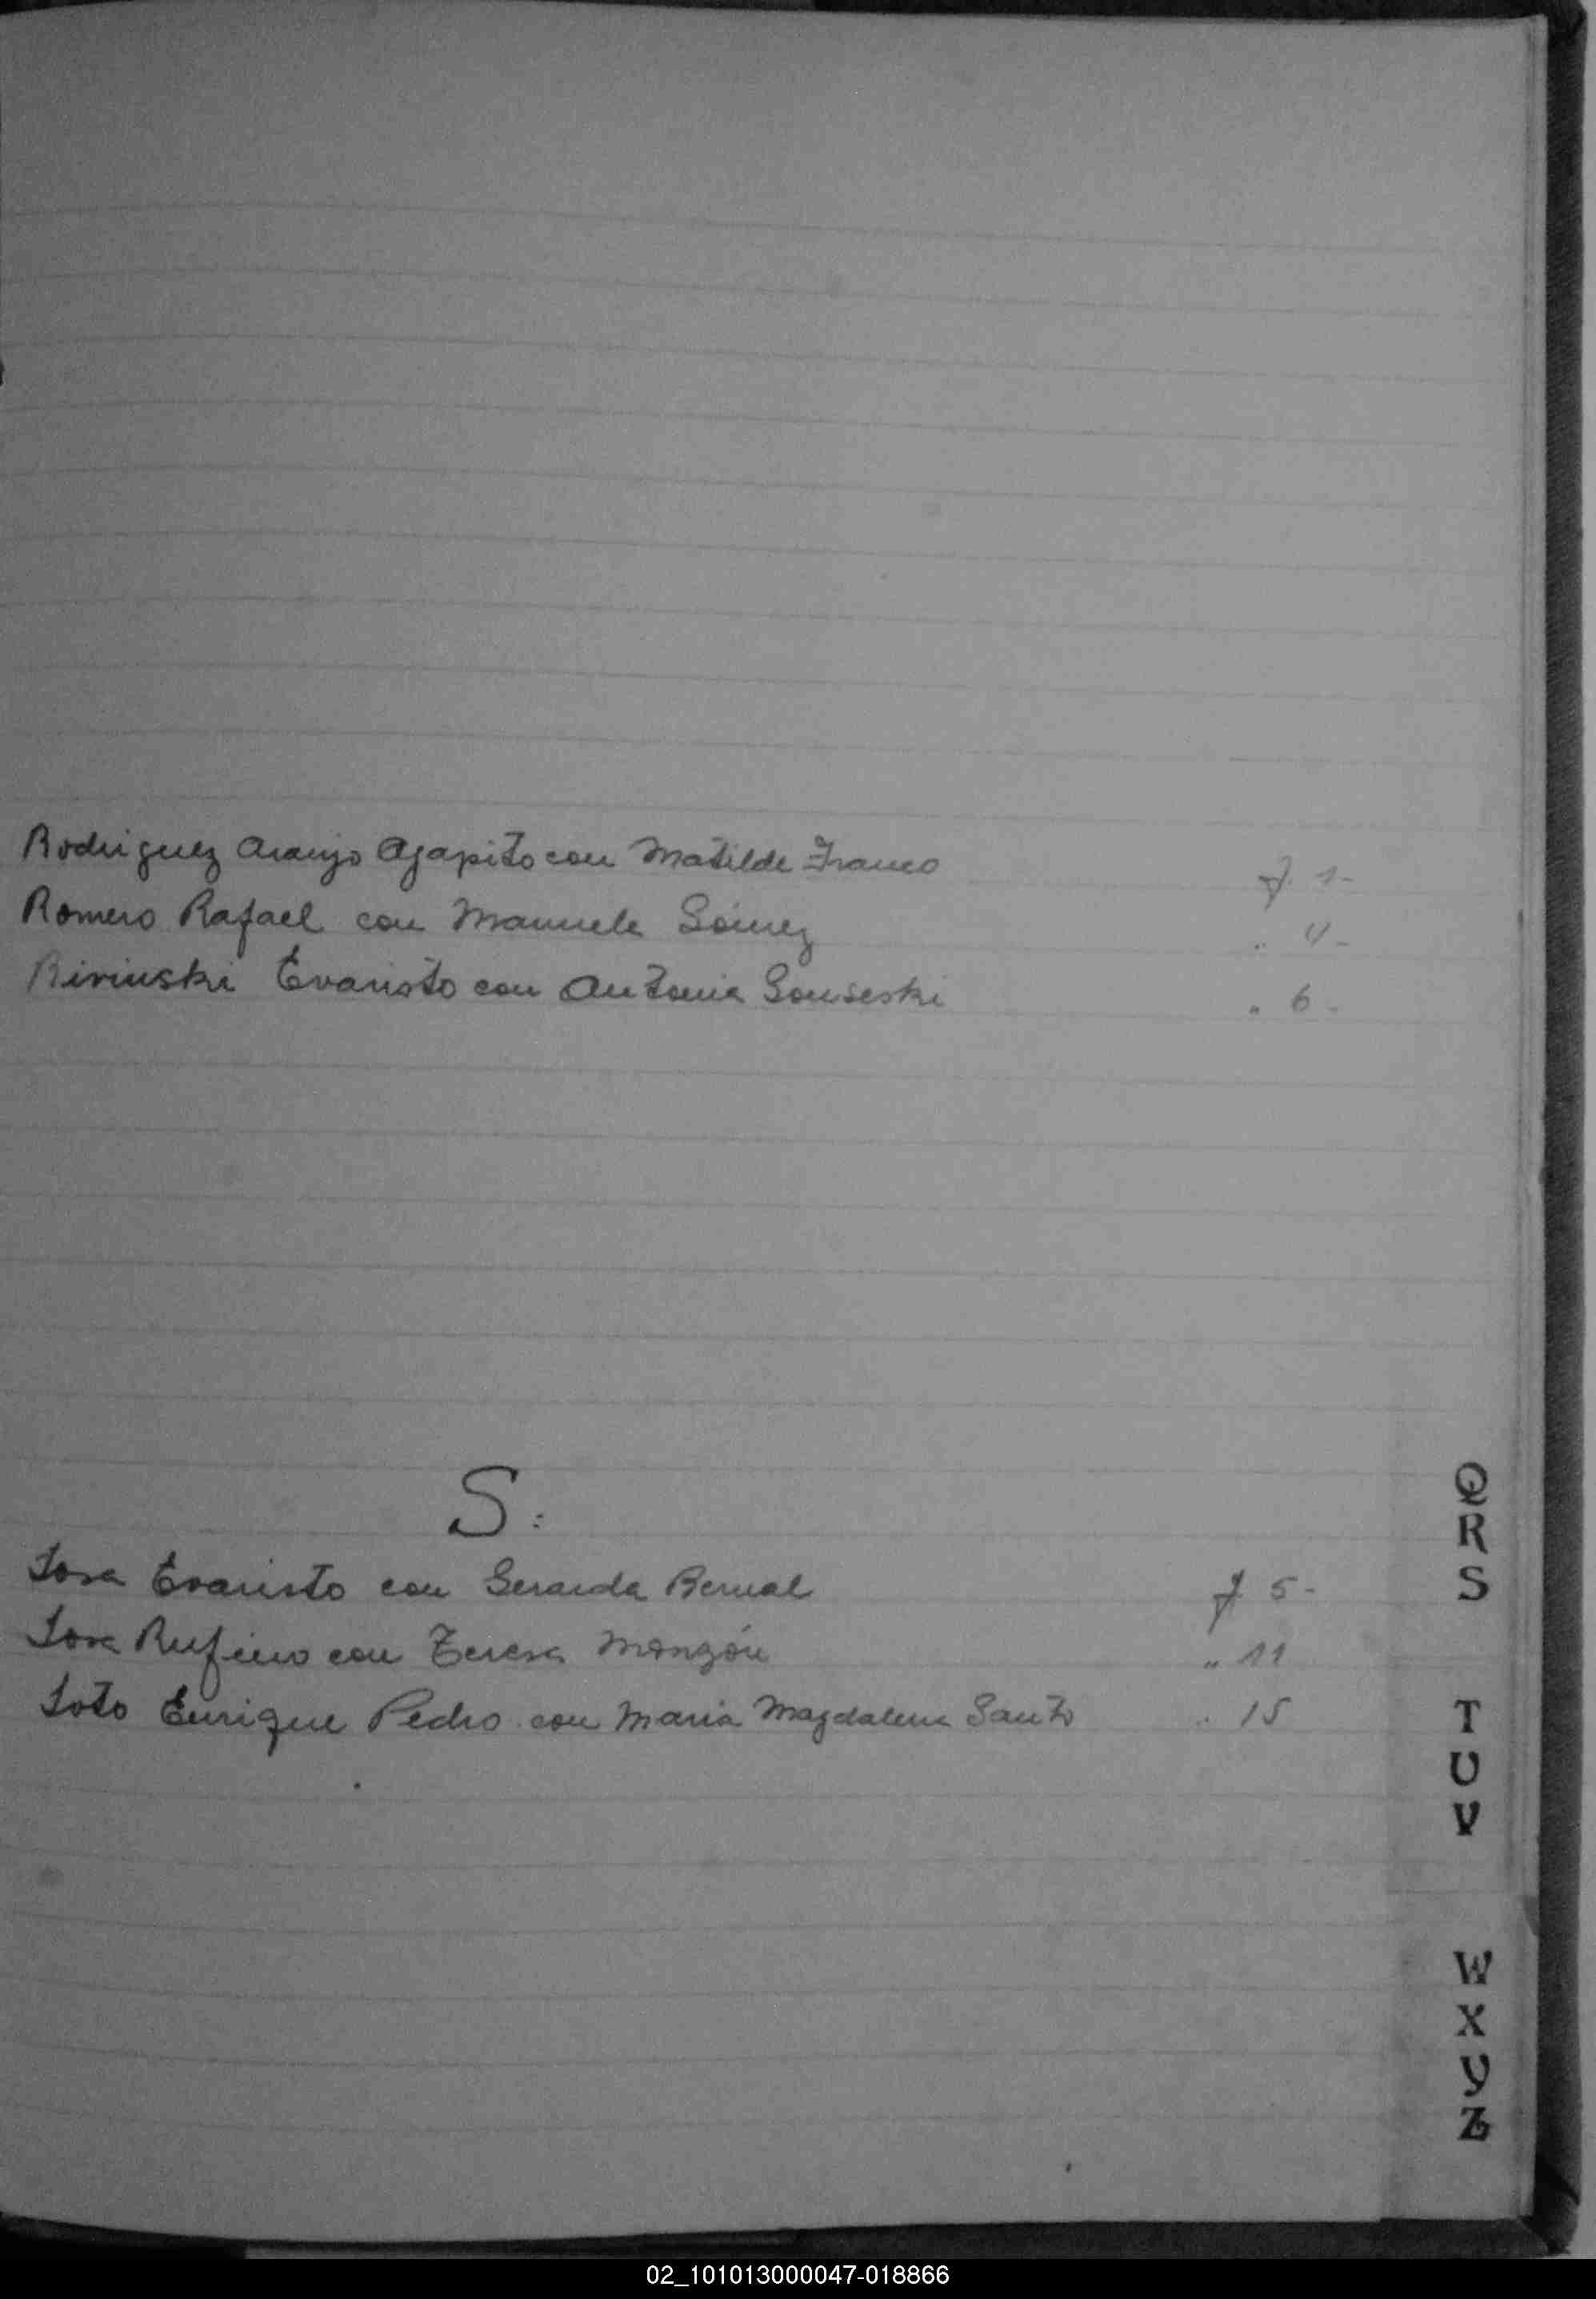 Rodriguez Araujo Agapito con Matilde Franco f. 1-
Romero Rafael con Manuela Gómez " 4-
Evaristo con Antonia " 6-
S:
Sosa Evaristo con Gerarda Bernal f 5-
Sosa Rufino con Teresa Monzón " 11
Soto Enrique Pedro con Maria Magdalena Santo " 15
Q
R
S
T
U
V
W
X
Y
Z
02_101013000047-018866